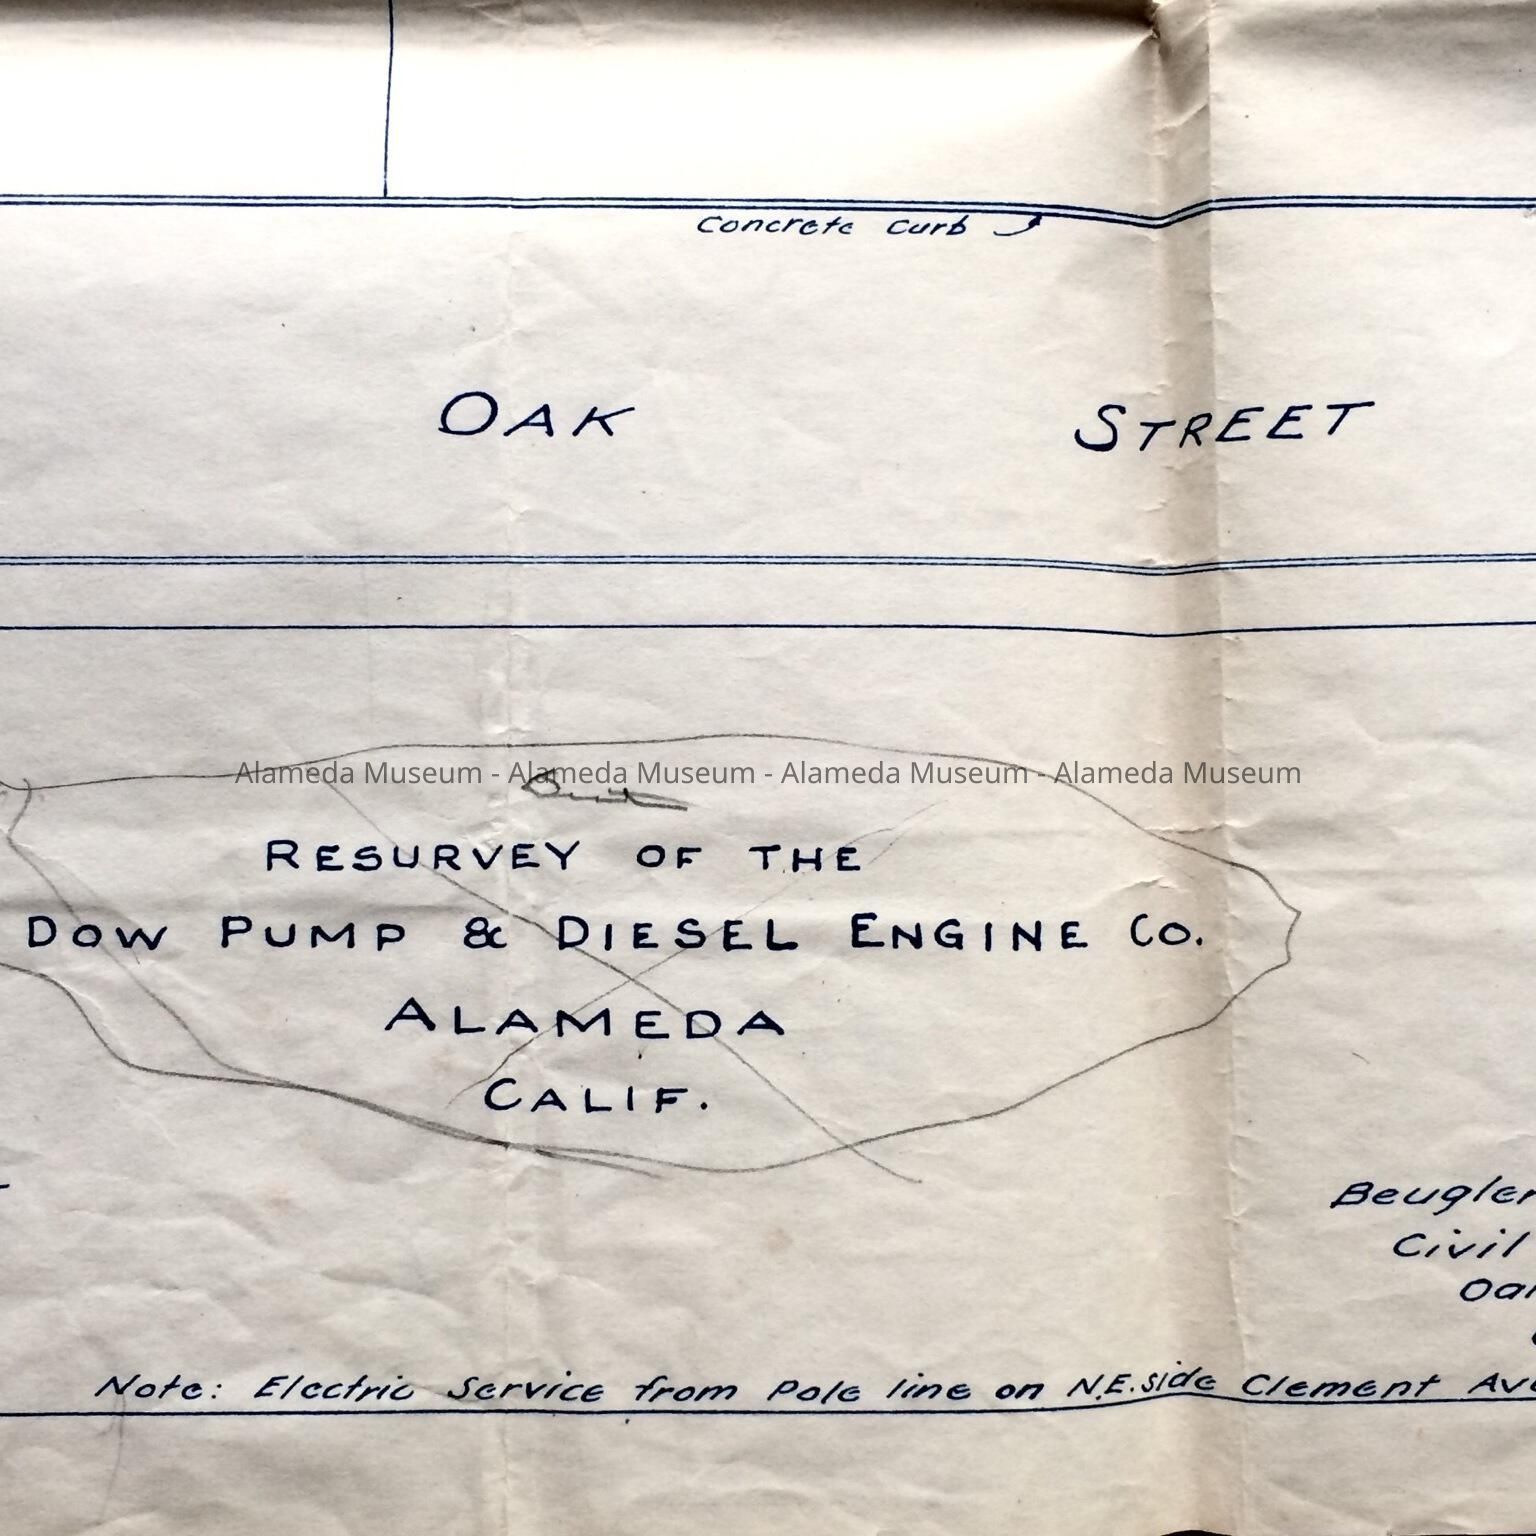 Concrete Curb
OAK STREET
Alameda Museum - Alameda Museum - Alameda Museum - Alameda Museum
RESURVEY OF THE
DOW PUMP & DIESEL ENGINE CO.
ALAMEDA
CALIF.
Beugler
Civil
Note: Electric Service from Pole line on N.E. side Clement Ave